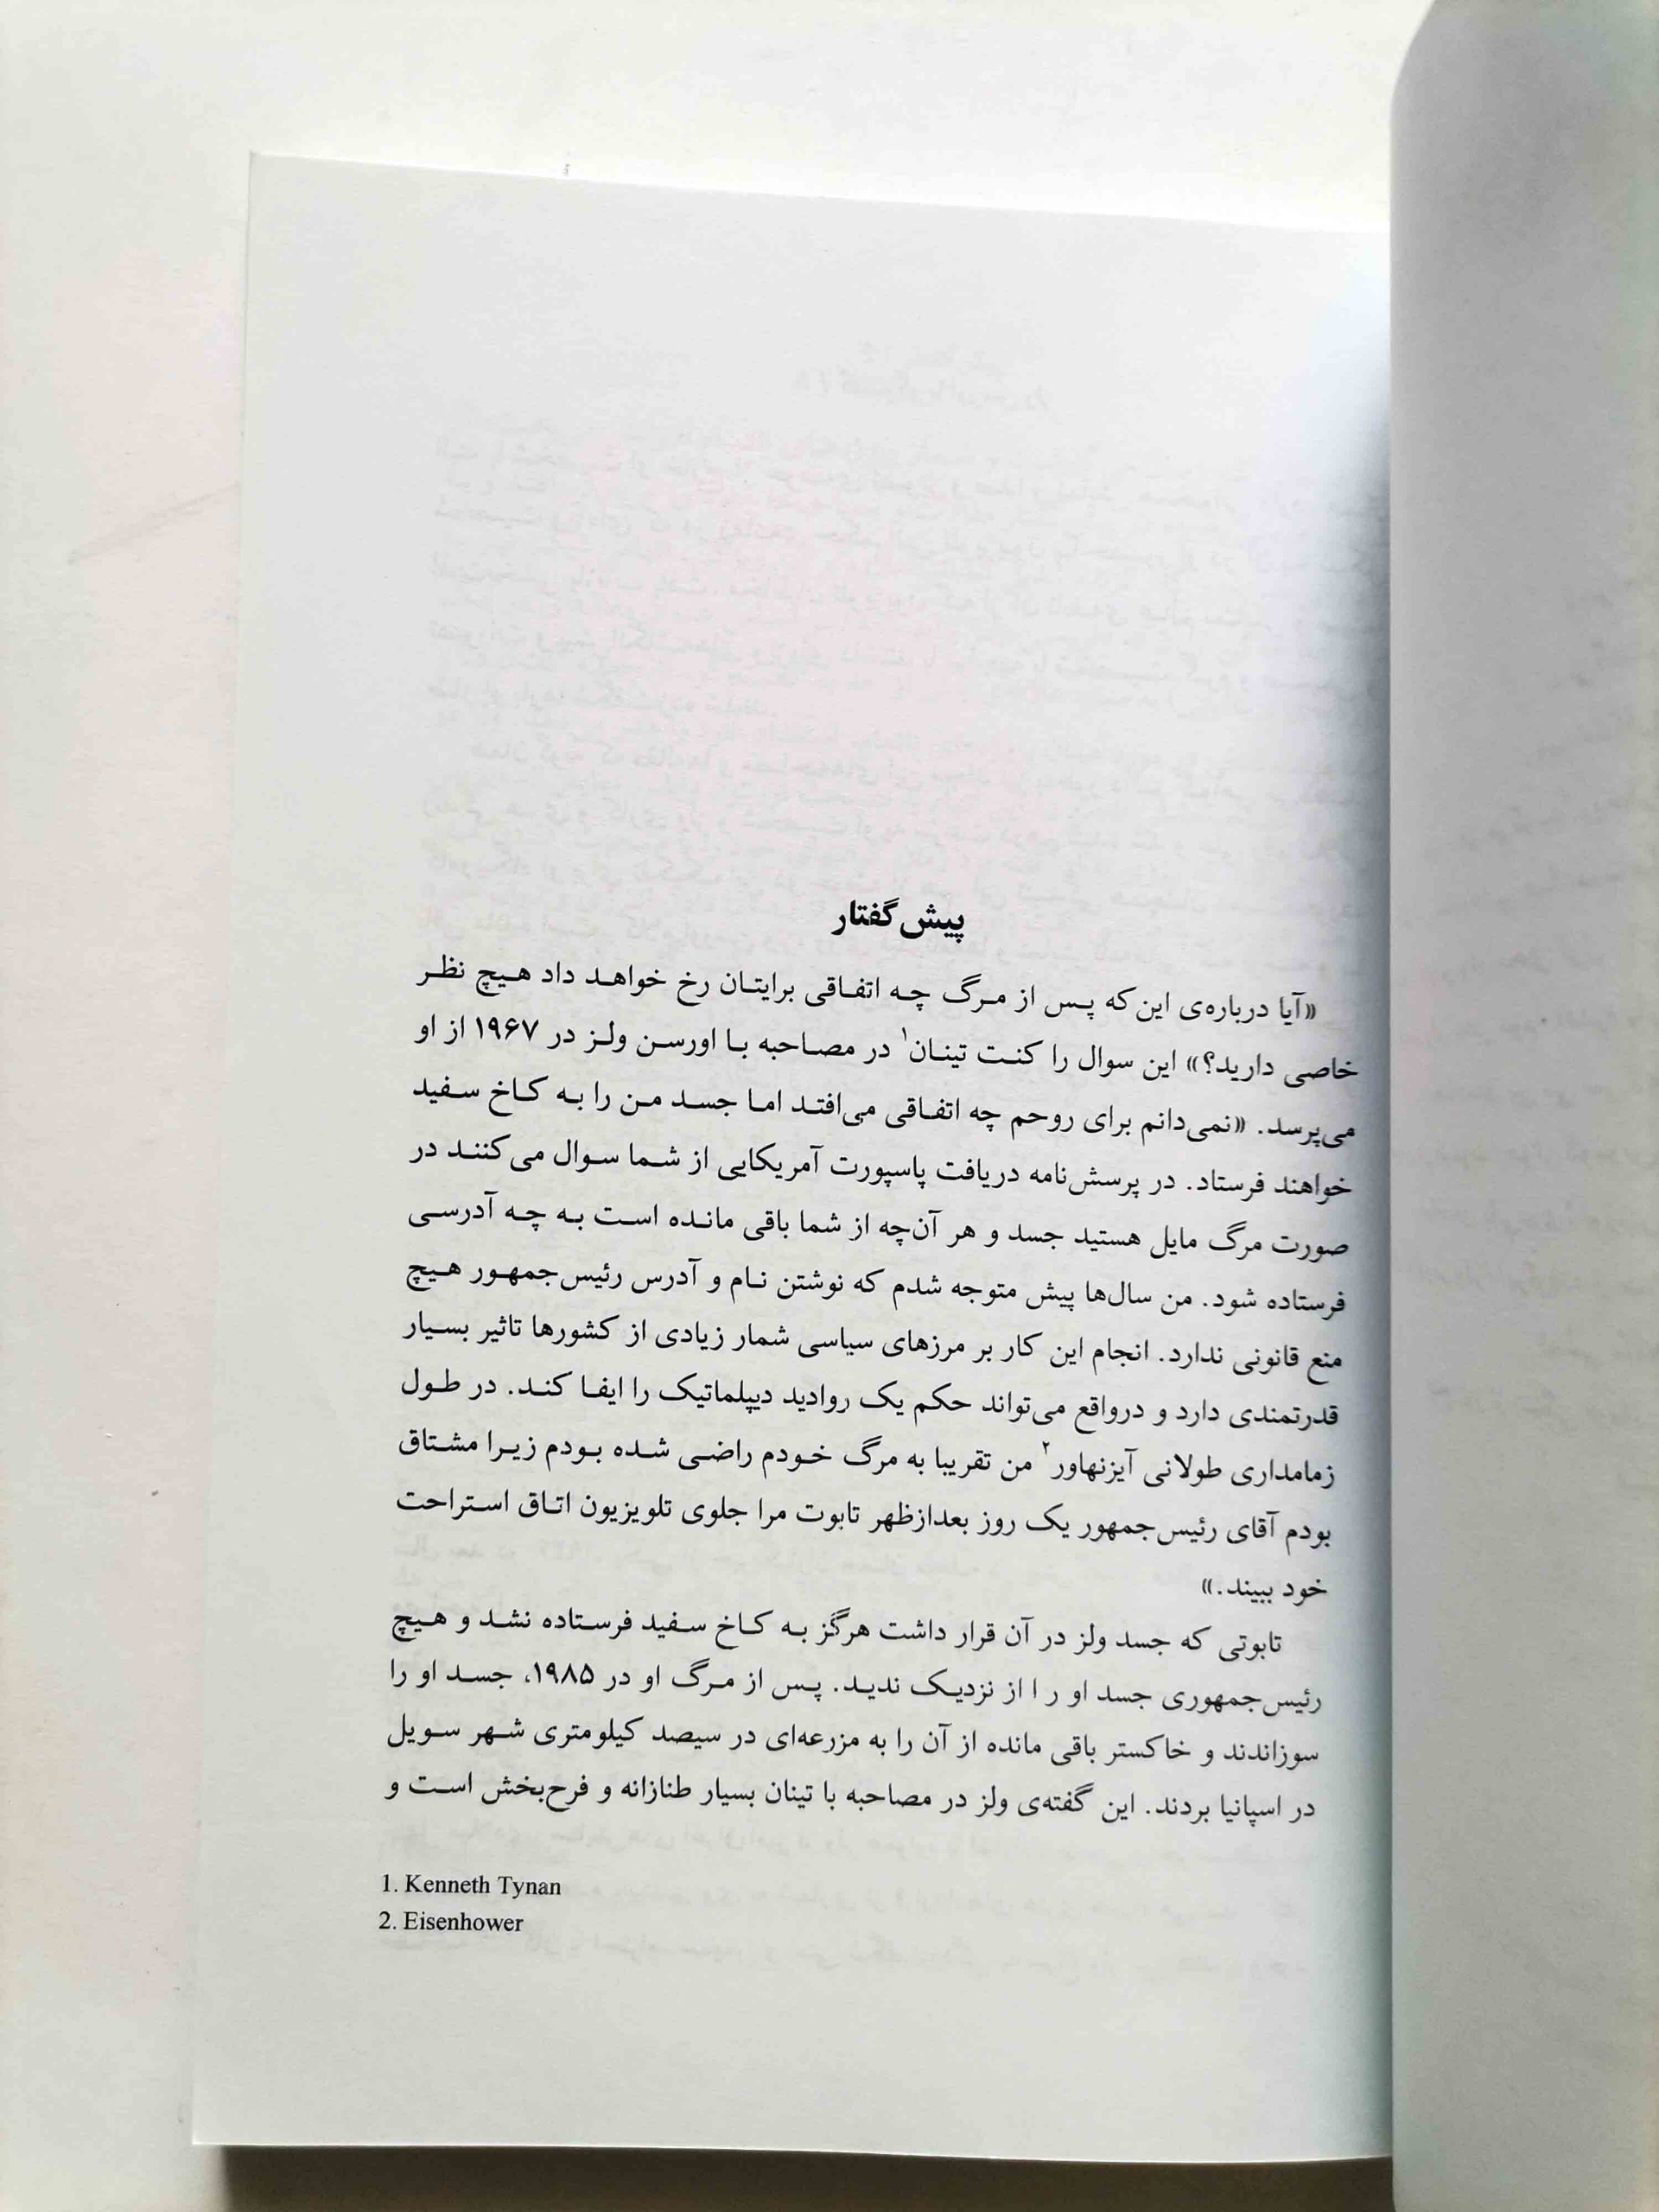 پیش‌گفتار
«آیا درباره‌ی این‌که پس از مرگ چه اتفاقی برایتان رخ خواهد داد هیچ نظر
خاصی دارید؟» این سوال را کنت تینان۱ در مصاحبه با اورسن ولز در ۱۹۶۷ از او
می‌پرسد. «نمی‌دانم برای روحم چه اتفاقی می‌افتد اما جسد من را به کاخ سفید
خواهند فرستاد. در پرسش‌نامه دریافت پاسپورت آمریکایی از شما سوال می‌کنند در
صورت مرگ مایل هستید جسد و هر آن‌چه از شما باقی مانده است به چه آدرسی
فرستاده شود. من سال‌ها پیش متوجه شدم که نوشتن نام و آدرس رئیس‌جمهور هیچ
منع قانونی ندارد. انجام این کار بر مرزهای سیاسی شمار زیادی از کشورها تاثیر بسیار
قدرتمندی دارد و درواقع می‌تواند حکم یک روادید دیپلماتیک را ایفا کند. در طول
زمامداری طولانی آیزنهاور۲ من تقریبا به مرگ خودم راضی شده بودم زیرا مشتاق
بودم آقای رئیس‌جمهور یک روز بعدازظهر تابوت مرا جلوی تلویزیون اتاق استراحت
خود ببیند.»
تابوتی که جسد ولز در آن قرار داشت هرگز به کاخ سفید فرستاده نشد و هیچ
رئیس‌جمهوری جسد او ر ا از نزدیک ندید. پس از مرگ او در ۱۹۸۵، جسد او را
سوزاندند و خاکستر باقی مانده از آن را به مزرعه‌ای در سیصد کیلومتری شهر سویل
در اسپانیا بردند. این گفته‌ی ولز در مصاحبه با تینان بسیار طنازانه و فرح‌بخش است و
1. Kenneth Tynan
2. Eisenhower